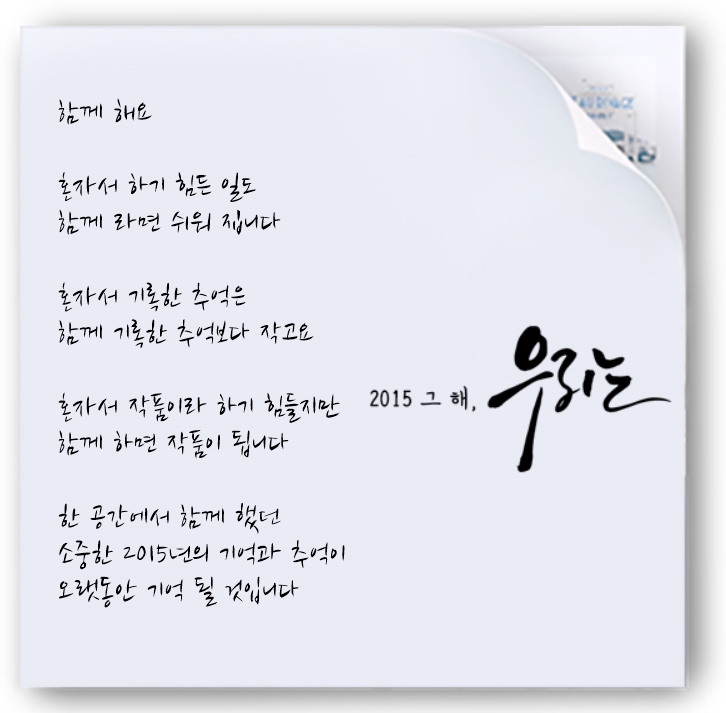 함께 해요
혼자서 하기 힘든 일도
함께 라면 쉬워 집니다
혼자서 기록한 추억은
함께 기록한 추억보다 작고요
혼자서 작품이라 하기 힘들지만
함께 하면 작품이 됩니다
한 공간에서 함께 했던
소중한 2015년의 기억과 추억이
오랫동안 기억 될 것입니다
2015 그 해, 우리는